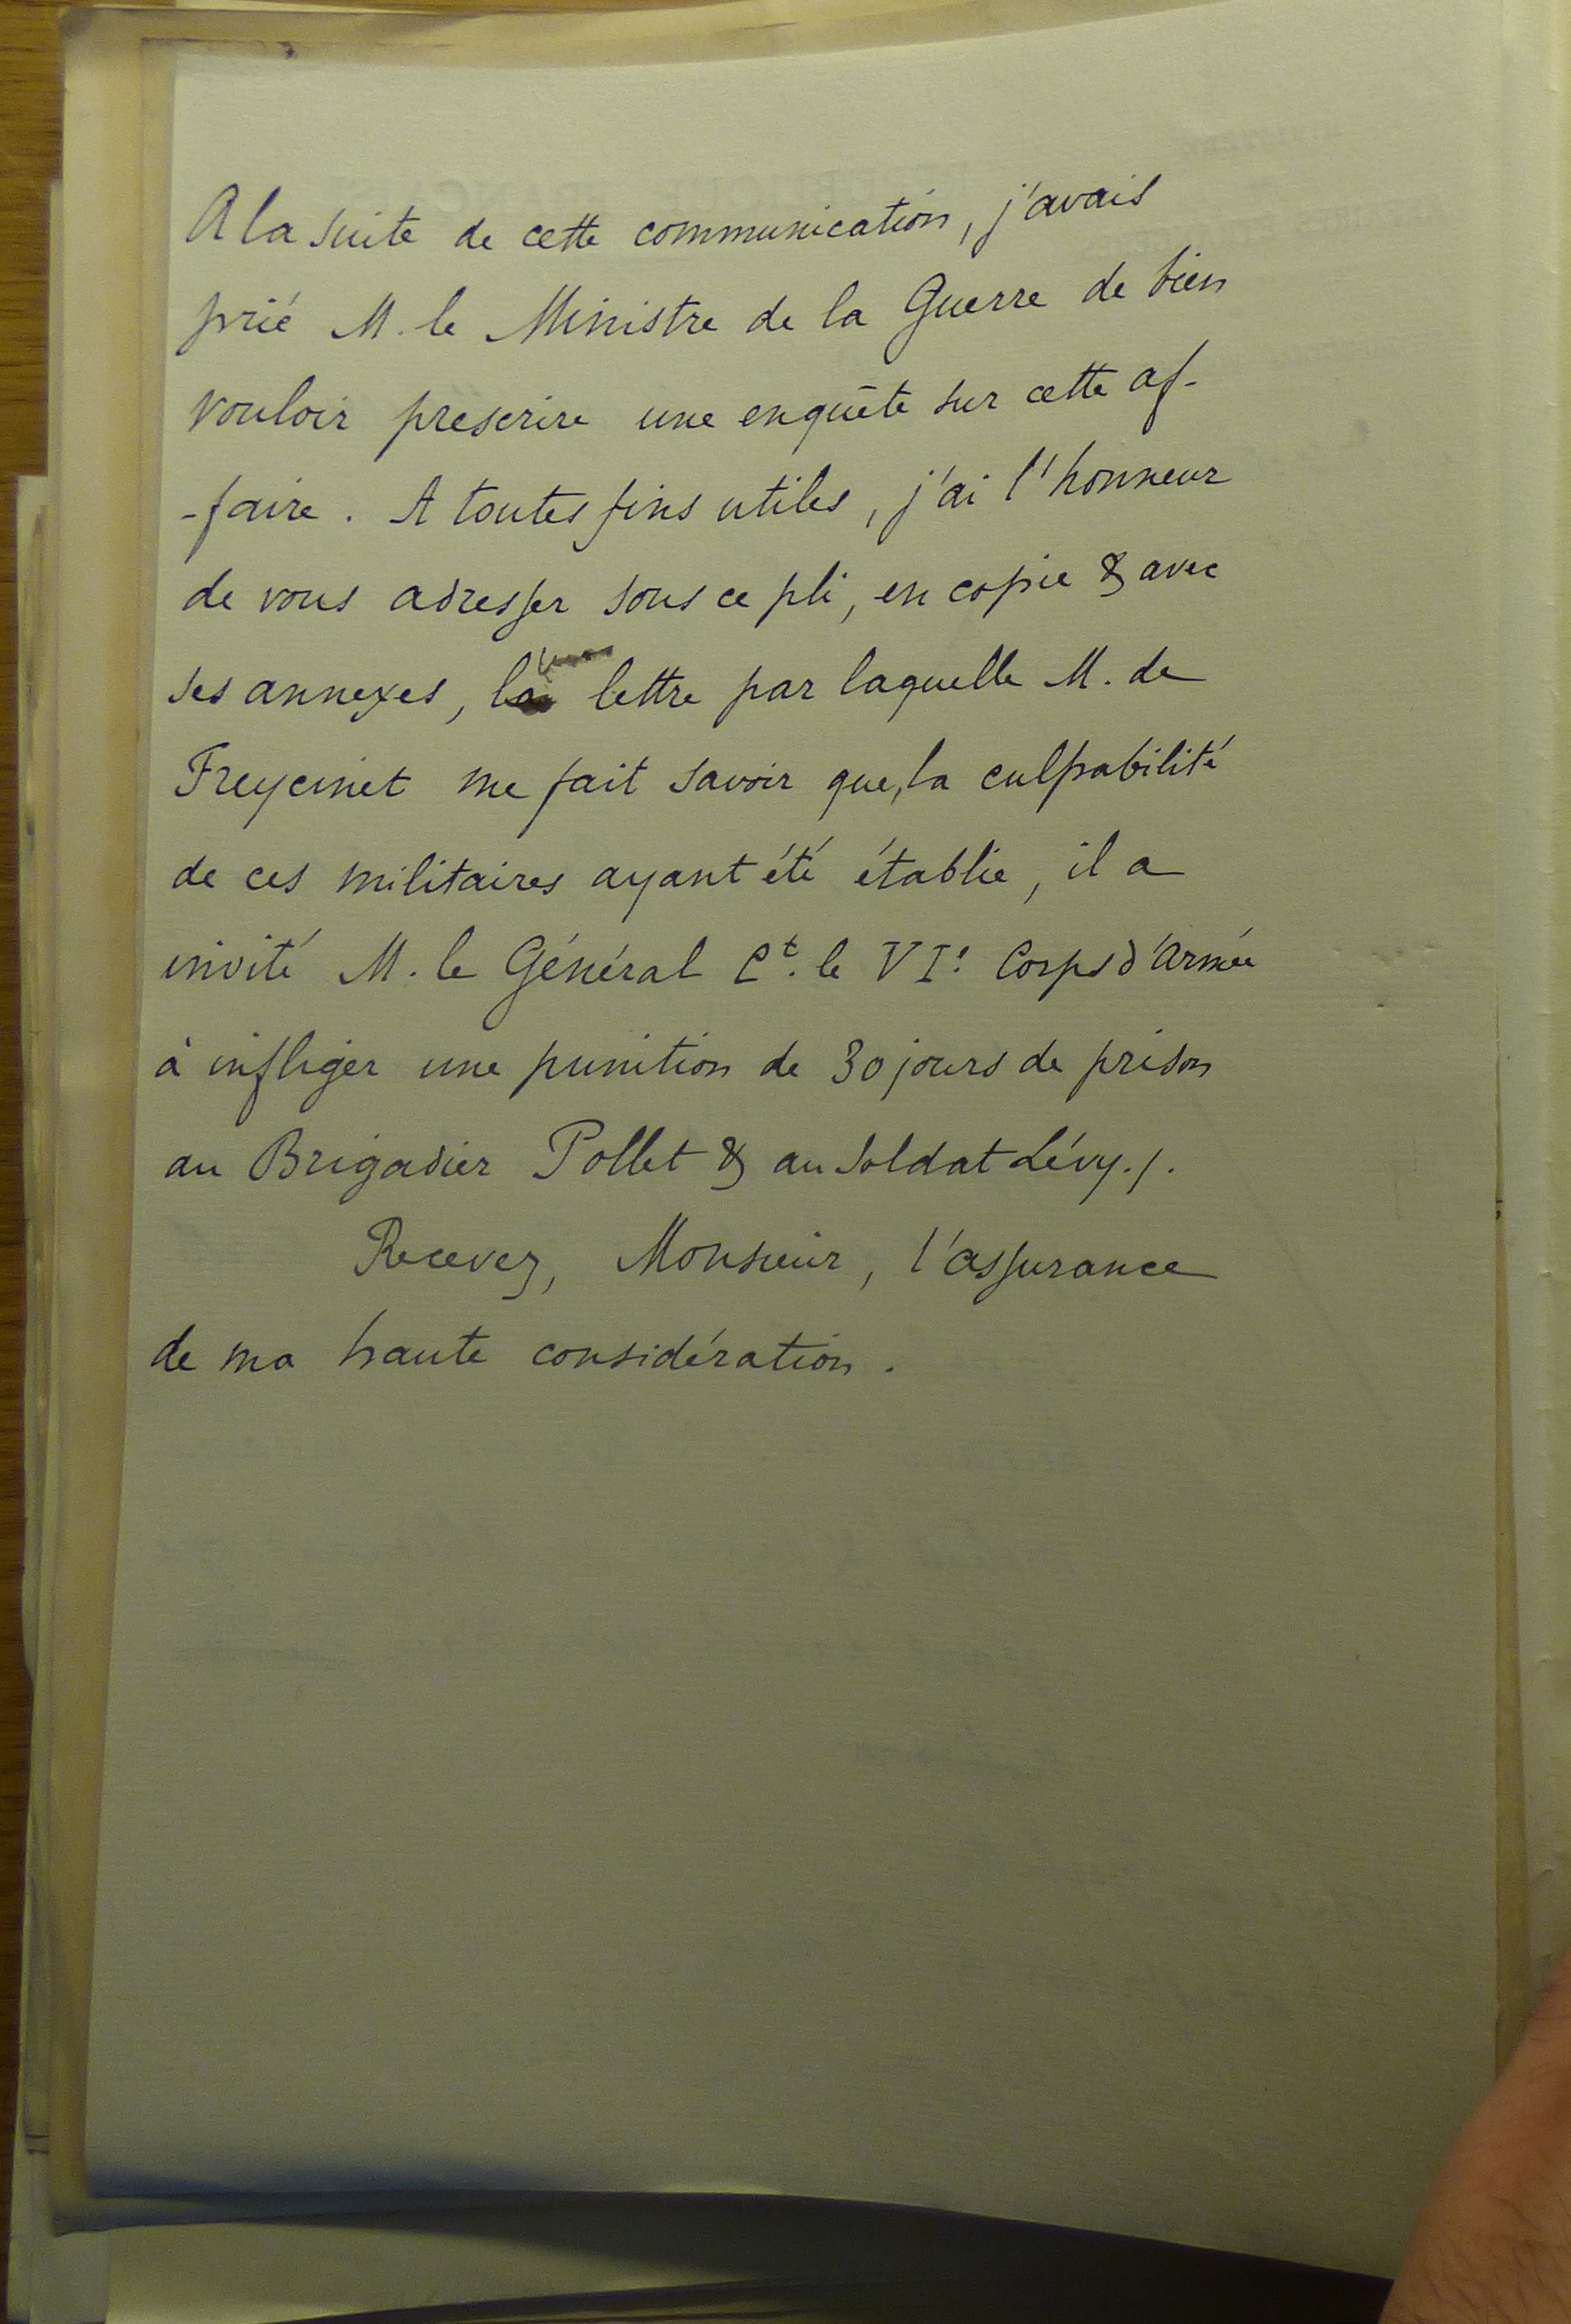 A la suite de cette communication, j'avais
prié M. le Ministre de la Guerre de bien
vouloir prescrire une enquête sur cette af-
-faire. A toutes fins utiles, j'ai l'honneur
de vous adresser sous ce pli, en copie & avec
ses annexes, la lettre par laquelle M. de
Freycinet me fait savoir que, la culpabilité
de ces militaires ayant été établie, il a
invité M. le Général Ct. le VIe Corps d'Armée
à infliger une punition de 30 jours de prison
au Brigadier Pollet & au Soldat Lévy./.
Recevez, Monsieur, l'assurance
de ma haute considération.